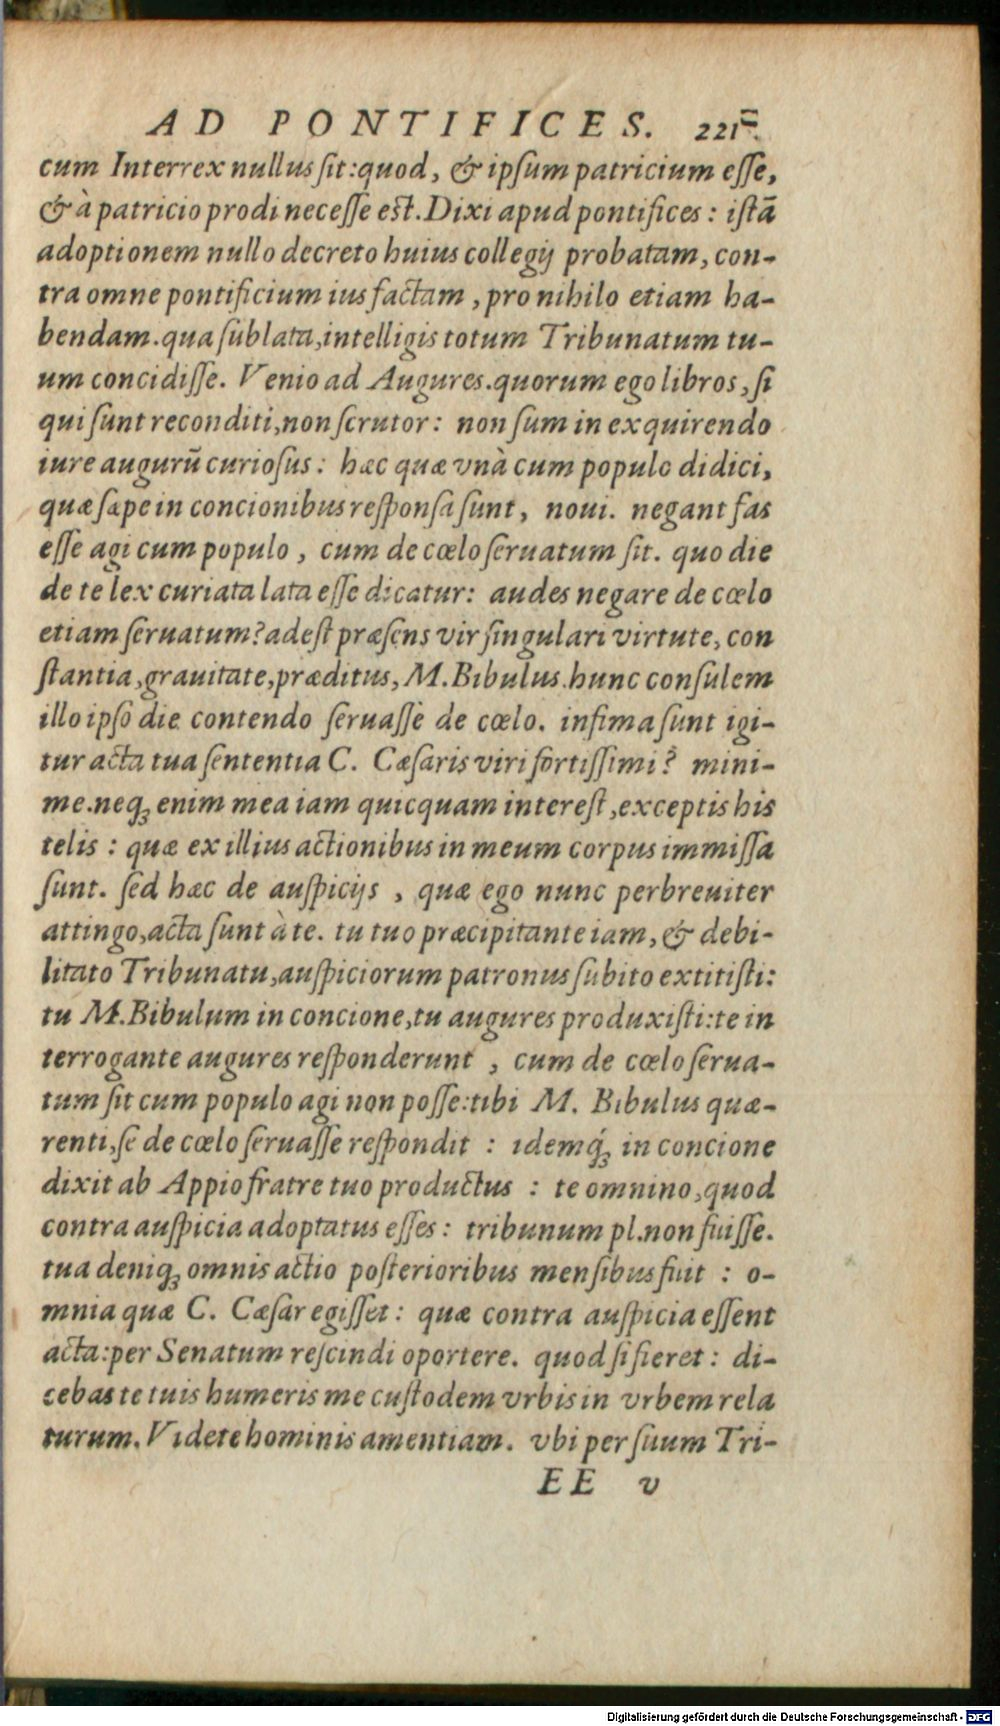 AD PONTIFICES. 221
cum Interrex nullus sit: quod, & ipsum patricium esse,
& à patricio prodi necesse est. Dixi apud pontifices: istā
adoptionem nullo decreto huius collegij probatam, con-
tra omne pontificium ius factam, pro nihilo etiam ha-
bendam. qua sublata, intelligis totum Tribunatum tu-
um concidisse. Venio ad Augures. quorum ego libros, si
qui sunt reconditi, non scrutor: non sum in exquirendo
iure augurū curiosus: hæc quæ vnà cum populo didici,
quæ sæpe in concionibus responsa sunt, noui. negant fas
esse agi cum populo, cum de cœlo seruatum sit. quo die
de te lex curiata lata esse dicatur: audes negare de cœlo
etiam seruatum? adest præsens vir singulari virtute, con
stantia, grauitate, præditus, M. Bibulus. hunc consulem
illo ipso die contendo seruasse de cœlo. infima sunt igi-
tur acta tua sententia C. Cæsaris viri fortissimi? mini-
me. neq; enim mea iam quicquam interest, exceptis his
telis: quæ ex illius actionibus in meum corpus immissa
sunt. sed hæc de auspicijs, quæ ego nunc perbreuiter
attingo, acta sunt à te. tu tuo præcipitante iam, & debi-
litato Tribunatu, auspiciorum patronus subito extitisti:
tu M. Bibulum in concione, tu augures produxisti: te in
terrogante augures responderunt, cum de cœlo serua-
tum sit cum populo agi non posse: tibi M. Bibulus quæ-
renti, se de cœlo seruasse respondit: idemq́; in concione
dixit ab Appio fratre tuo productus: te omnino, quod
contra auspicia adoptatus esses: tribunum pl. non fuisse.
tua deniq; omnis actio posterioribus mensibus fuit: o-
mnia quæ C. Cæsar egisset: quæ contra auspicia essent
acta: per Senatum rescindi oportere. quod si fieret: di-
cebas te tuis humeris me custodem vrbis in vrbem rela
turum. Videte hominis amentiam. vbi per suum Tri-
EE v
Digitalisierung gefördert durch die Deutsche Forschungsgemeinschaft - DFG